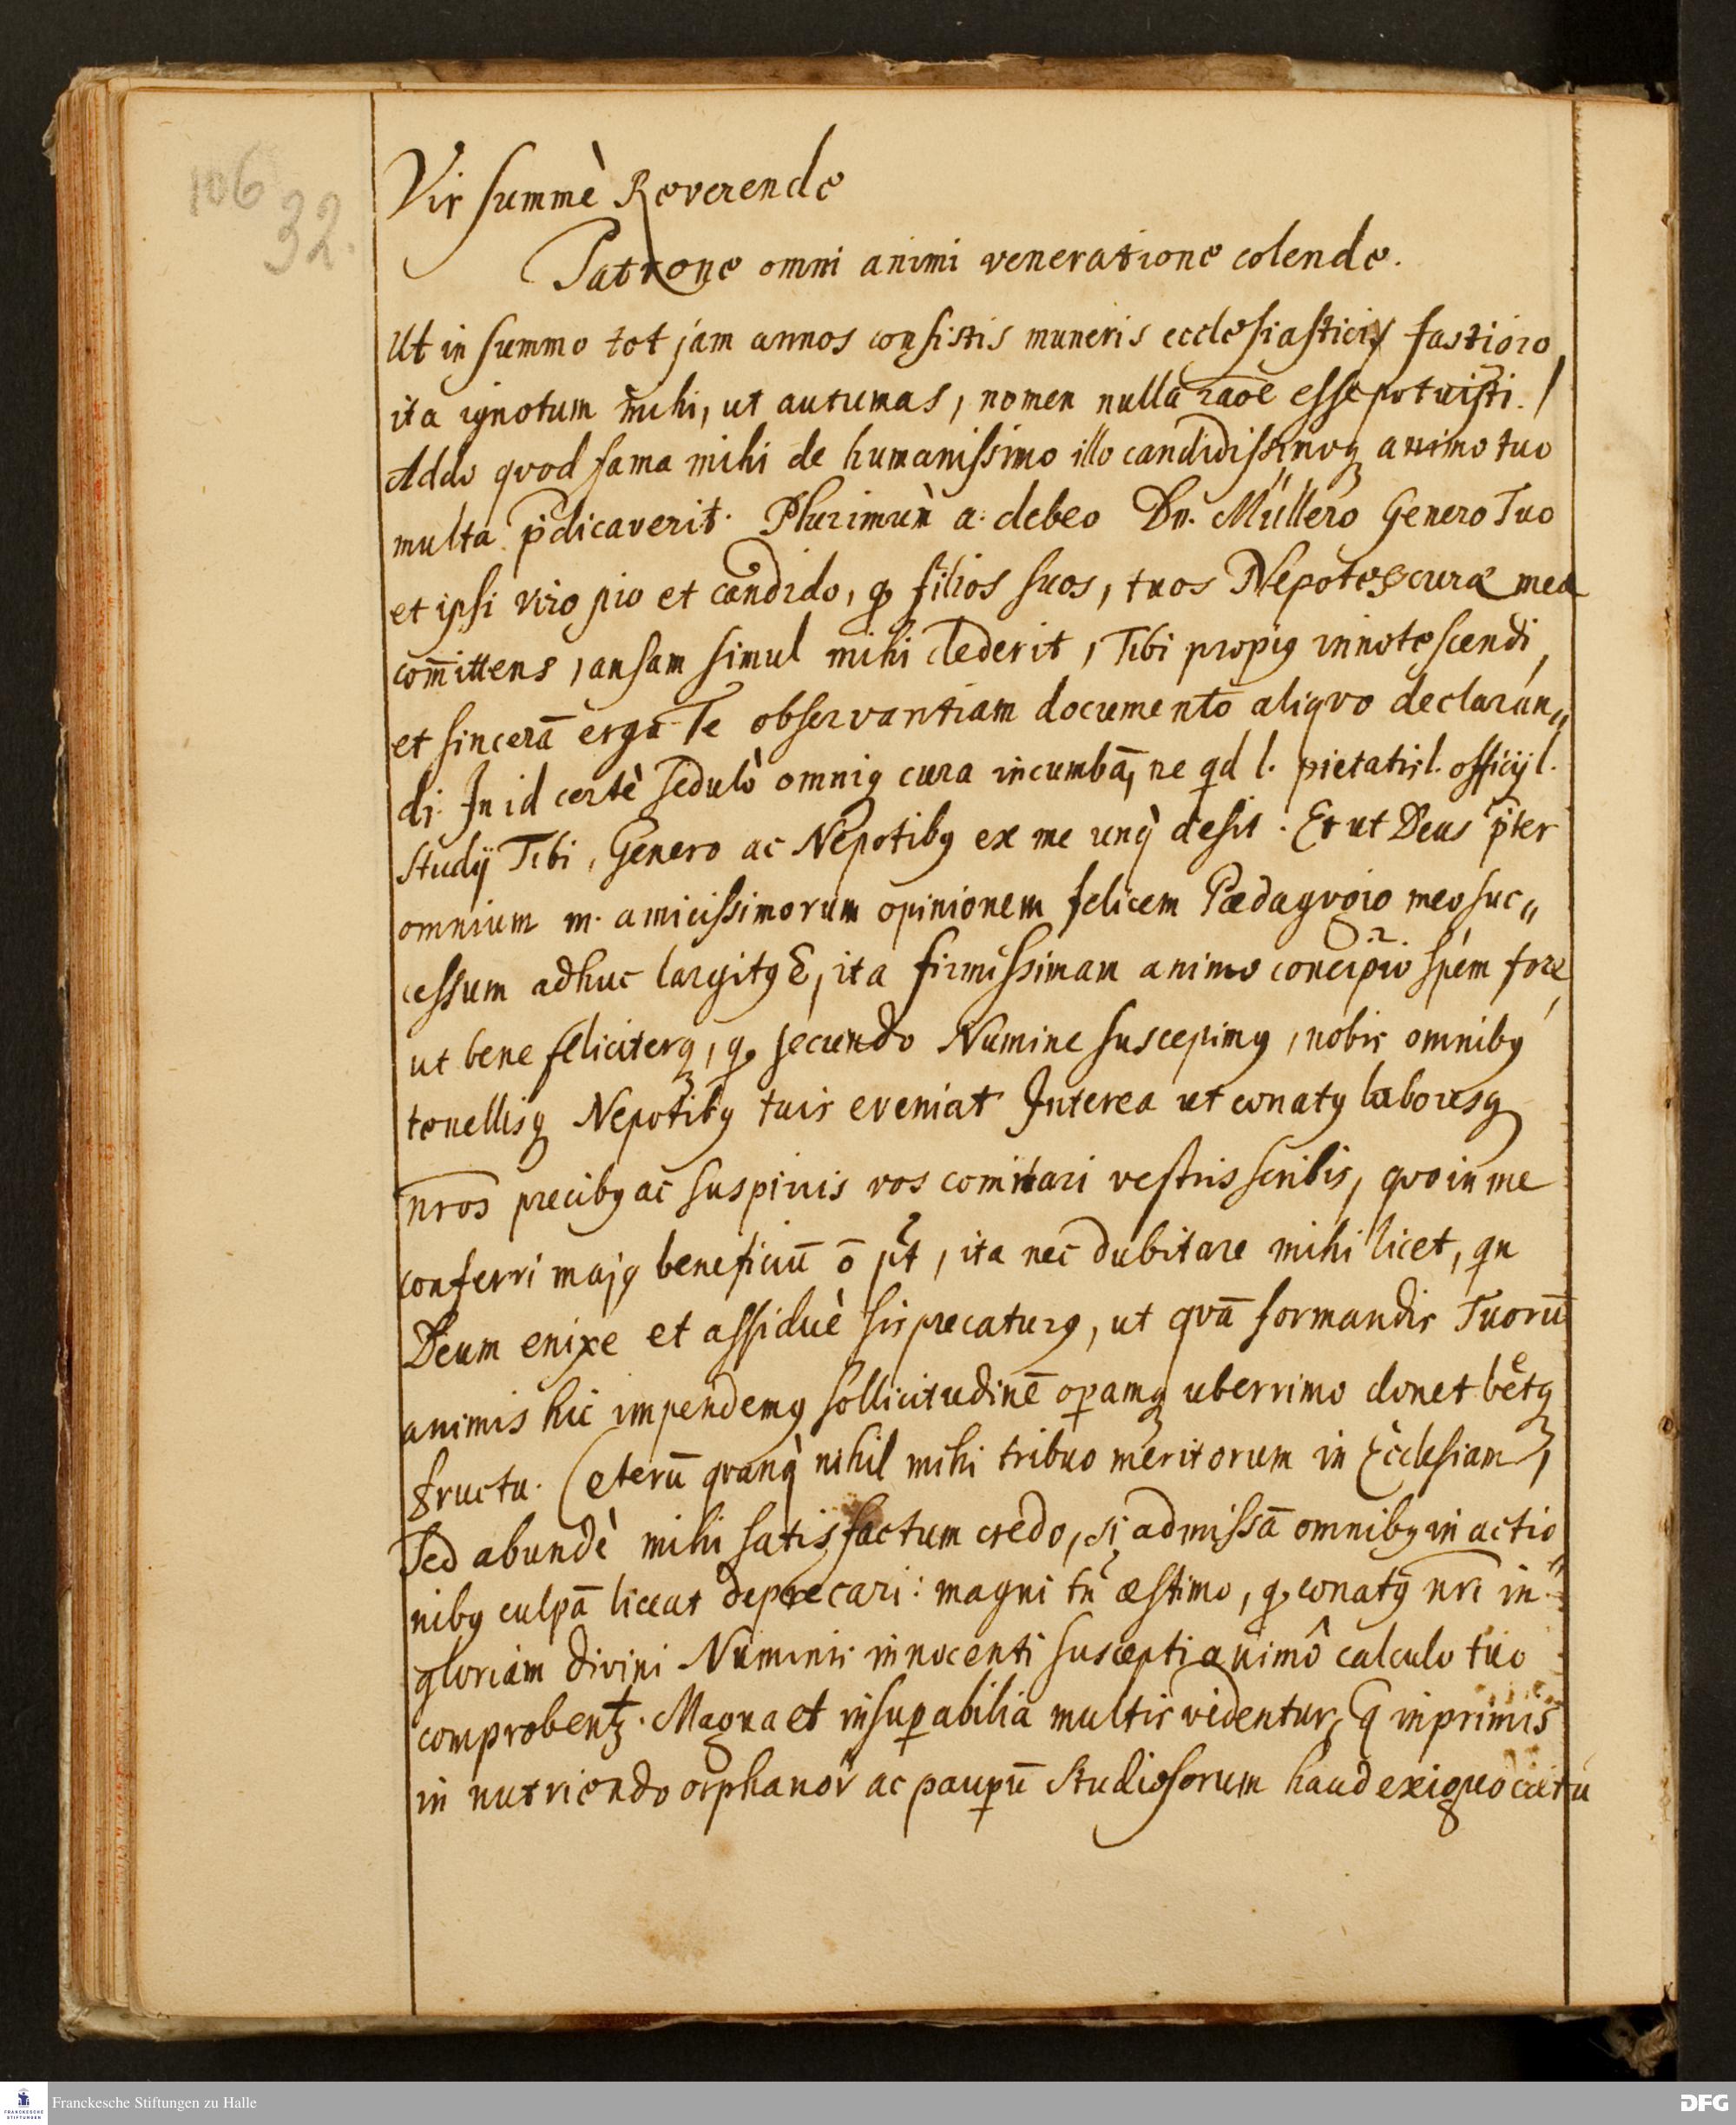 106
32.
Vir summè Reverende
Patrone omni animi veneratione colende.
Ut in summo tot jam annos consistis muneris ecclesiastici fastigio,
ita ignotum mihi, ut autumas, nomen nullâ raoe esse potuisti.
Addo qvod fama mihi de humanissimo illo candidissimoq animo tuo
multa p̄dicaverit. Plurimùn a. debeo Dn. Müllero Genero Tuo
et ipsi viro pio et candido, q filios suos, tuos Nepotes curæ meæ
com̄ittens, ansam simul mihi dederit, Tibi propiꝯ innotescendi,
et sincerā erga Te observantiam documento aliqvo declaran„
di. In id certè sedulò omniq cura incumbā, ne qd l. pietatis l. officij l.
studij Tibi, Genero ac Nepotibꝯ ex me unq̀ desit. Et ut Deus p̄ter
omnium m. amicissimorum opinionem felicem Pædagogio meo suc„
cessum adhuc largitꝯ E, ita firmissimam animo concipio spem fore,
ut bene feliciterq, q secundo Numine suscepimꝯ, nobis omnibꝯ
tenellisq Nepotibꝯ tuis eveniat Interea ut conatꝯ laboresq
nros precibꝯ ac suspiriis vos comitari vestris scribis, qvo in me
conferri majꝯ beneficiū ō pt, ita nec dubitare mihi licet, qn
Deum enixe et assiduè sis precaturꝯ, ut qvā formandis Tuorū
animis hic impendemꝯ sollicitudinē opamq uberrimo donet bētq
fructu. Ceterū qvanq̀ nihil mihi tribuo meritorum in Ecclesiam,
Sed abundè mihi satisfactum credo, si admissā omnibꝯ in actio„
nibꝯ culpā liceat deprecari: magni tn̄ æstimo, q conatꝯ nr̄i in
gloriam divini Numinis innocenti suscepti animô calculo tuo
comprobentꝫ. Magna et insupabilia multis videntur, q inprimis
in nutriendo orphanor ac paupū Studiosorum haud exiguo cœtu
Franckesche Stiftungen zu Halle
FRANCKESCHE STIFTUNGEN
DFG